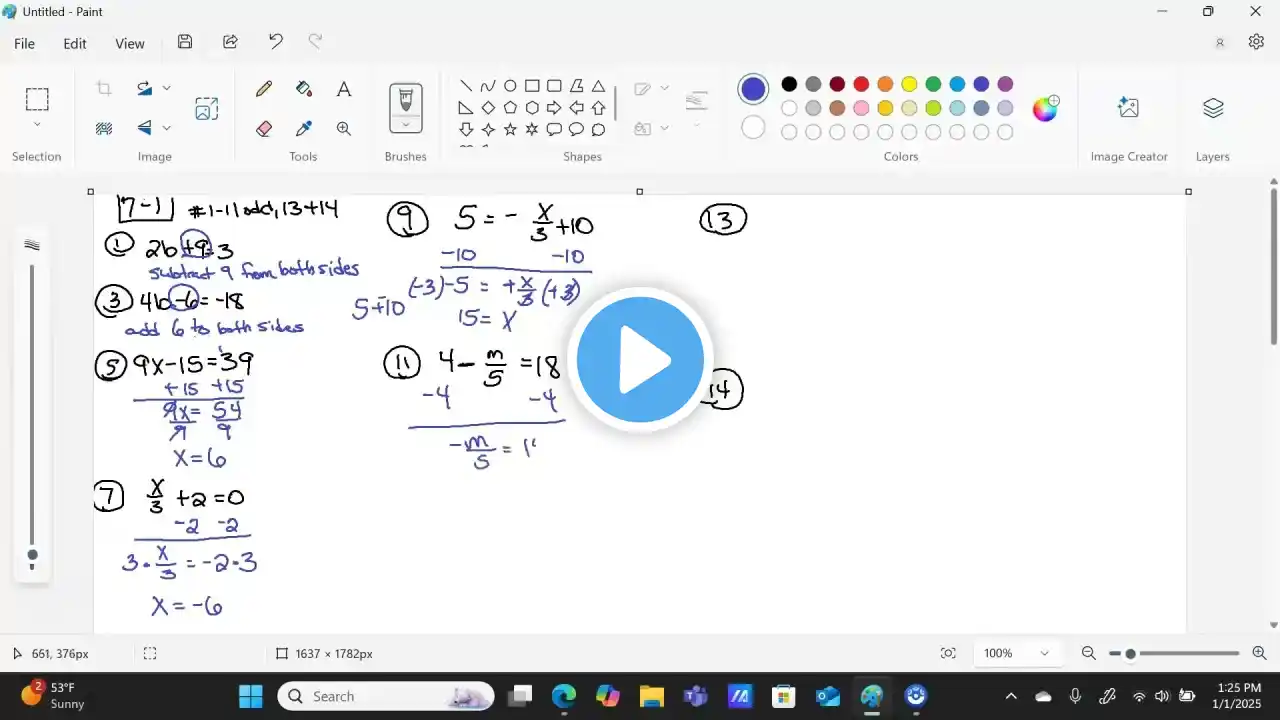 Untitled - Paint
File Edit View
Selection
Image
Tools
Brushes
Shapes
Colors
Image Creator
Layers
7-1 #1-11 odd, 13+14
① 2b+9=3
subtract 9 from both sides
③ 4b-6=-18
add 6 to both sides
⑤ 9x-15=39
+15 +15
9x = 54
9 9
x=6
⑦ x/3 +2=0
-2 -2
3·x/3 = -2·3
x=-6
⑨ 5=- x/3 +10
-10 -10
(-3)-5 = +x/3 (+3)
5+-10
15= x
⑪ 4- m/5 =18
-4 -4
-m/5 = 1
⑬
⑭
661, 376px
1637 × 1782px
100%
2
53°F
Sunny
Search
1:25 PM
1/1/2025